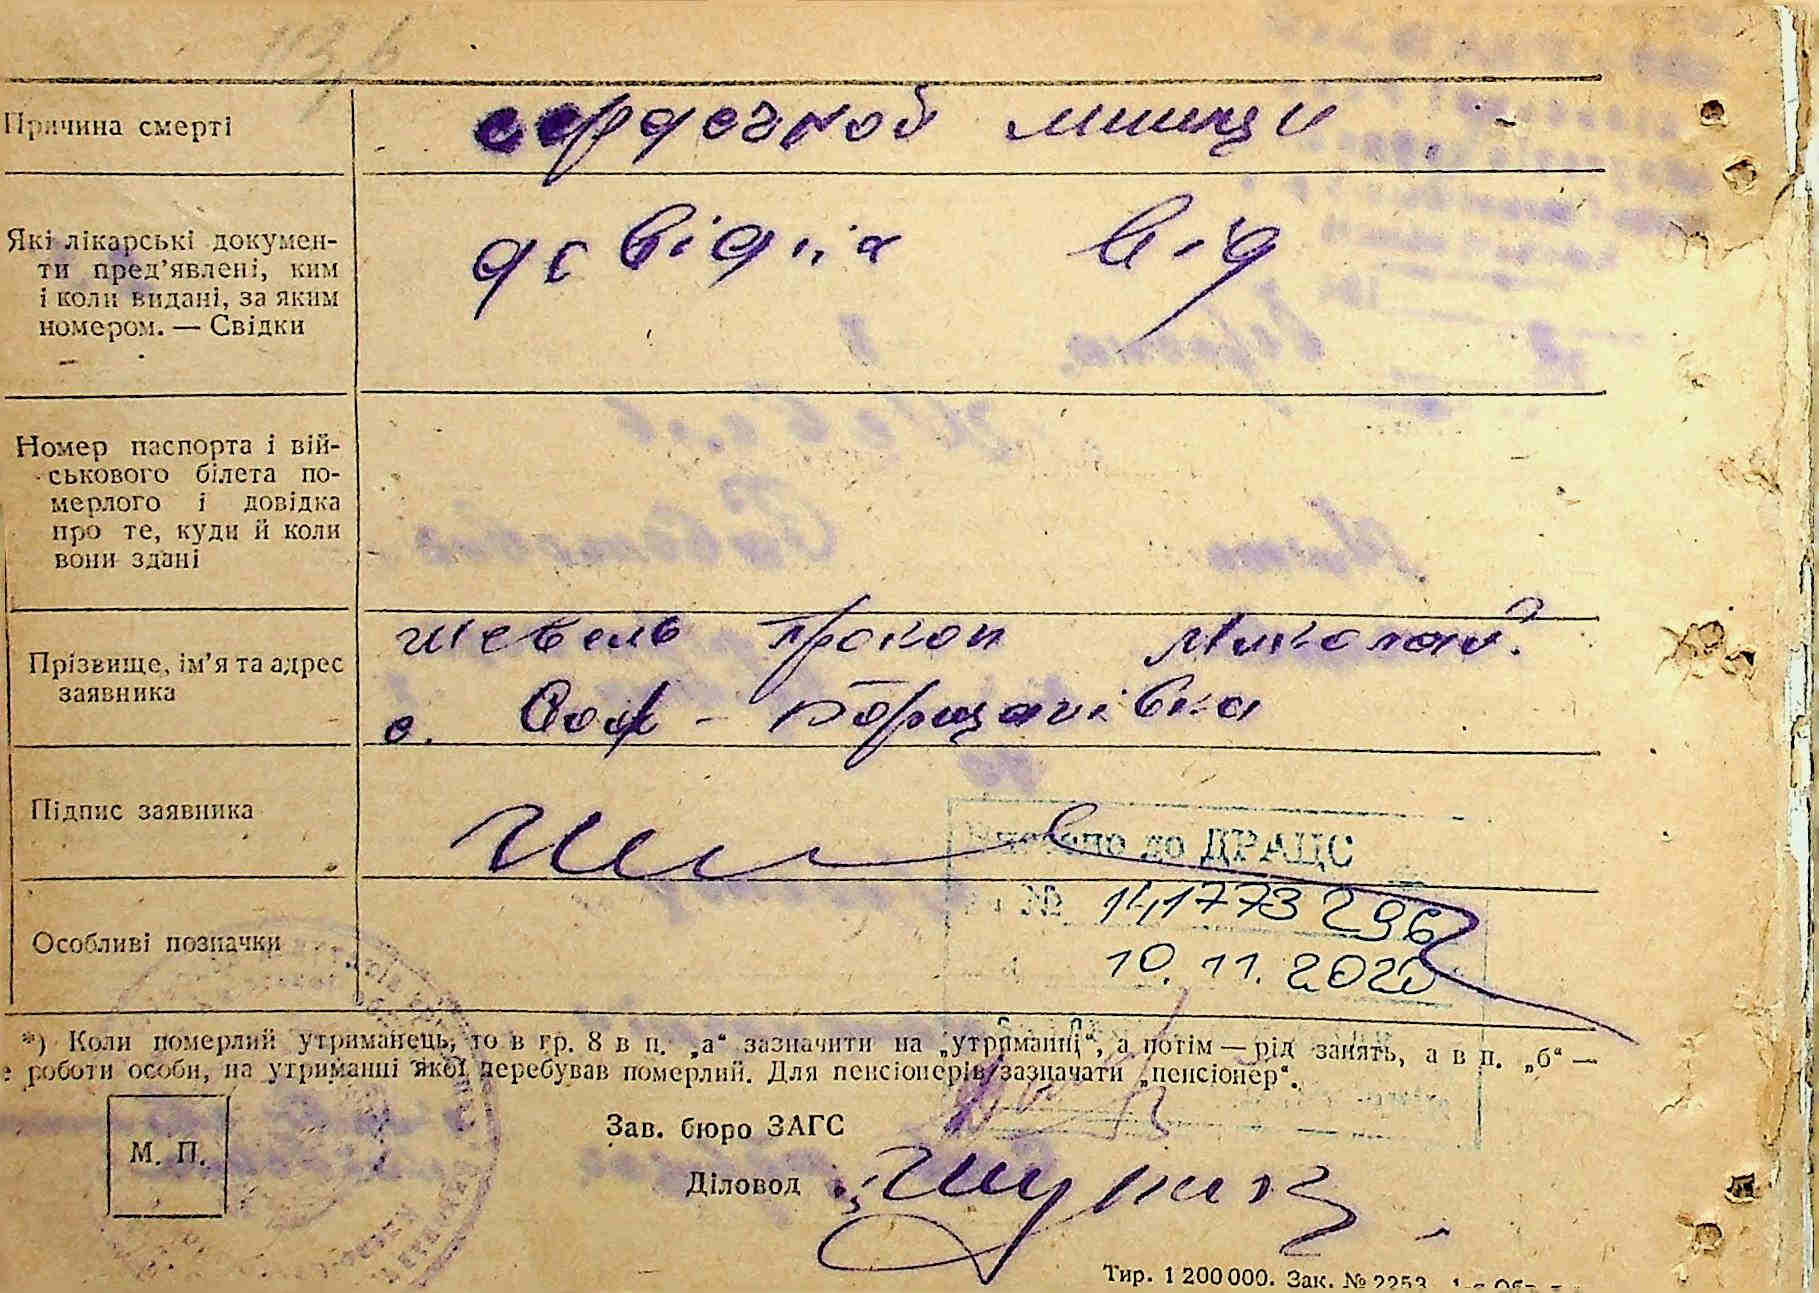 Причина смерті
сердечной мишци
Які лікарські докумен-
ти пред’явлені, ким
і коли видані, за яким
номером. — Свідки
довідка від
Номер паспорта і вій-
ськового білета по-
мерлого і довідка
про те, куди й коли
вони здані
Прізвище, ім’я та адрес
заявника
Шевель Прокоп Миколай.
с. Соф - Борщагівка
Підпис заявника
до ДРАЦС
№ 141773296
10.11.2020
Особливі позначки
*) Коли померлий утриманець, то в гр. 8 в п. „а“ зазначити на „утриманні“, а потім — рід занять, а в п. „б“ —
роботи особи, на утриманні якої перебував померлий. Для пенсіонерів зазначати „пенсіонер“.
М. П.
Зав. бюро ЗАГС
Діловод
Тир. 1 200 000. Зак. № 2253.